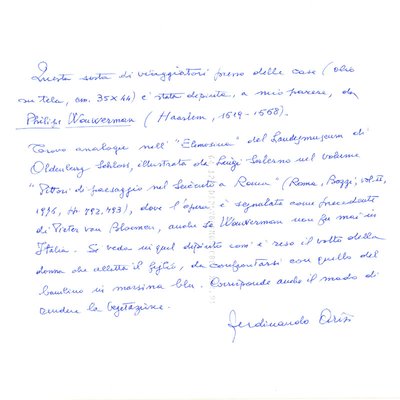 Questa sosta di viaggiatori presso delle case (olio
su tela, cm. 35x44) è stata dipinta, a mio parere, da
Philips Wouwerman (Haarlem, 1619-1668).
Trovo analogie nell'"Elemosina" del Landesmuseum di
Oldenburg Schloss, illustrata da Luigi Salerno nel volume
"Pittori di paesaggio nel Seicento a Roma" (Roma, Bozzi, vol. II,
1976, 492, 493), dove l'opera è segnalata come precedente
di Pieter van Bloemen, anche se Wouwerman non fu mai in
Italia. Si veda in quel dipinto com'è reso il volto della
donna che allatta il figlio, da confrontarsi con quello del
bambino in marsina blu. Corrisponde anche il modo di
rendere la vegetazione.
Ferdinando Arisi